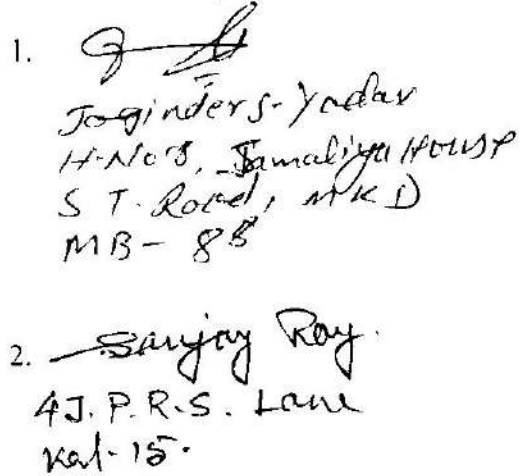 1.
Joginder S. Yadav
H.No 8, Jamaliya House
S T. Road, MKD
MB - 88
2. Sanjay Roy.
4J. P. R. S. Lane
Kal - 15.